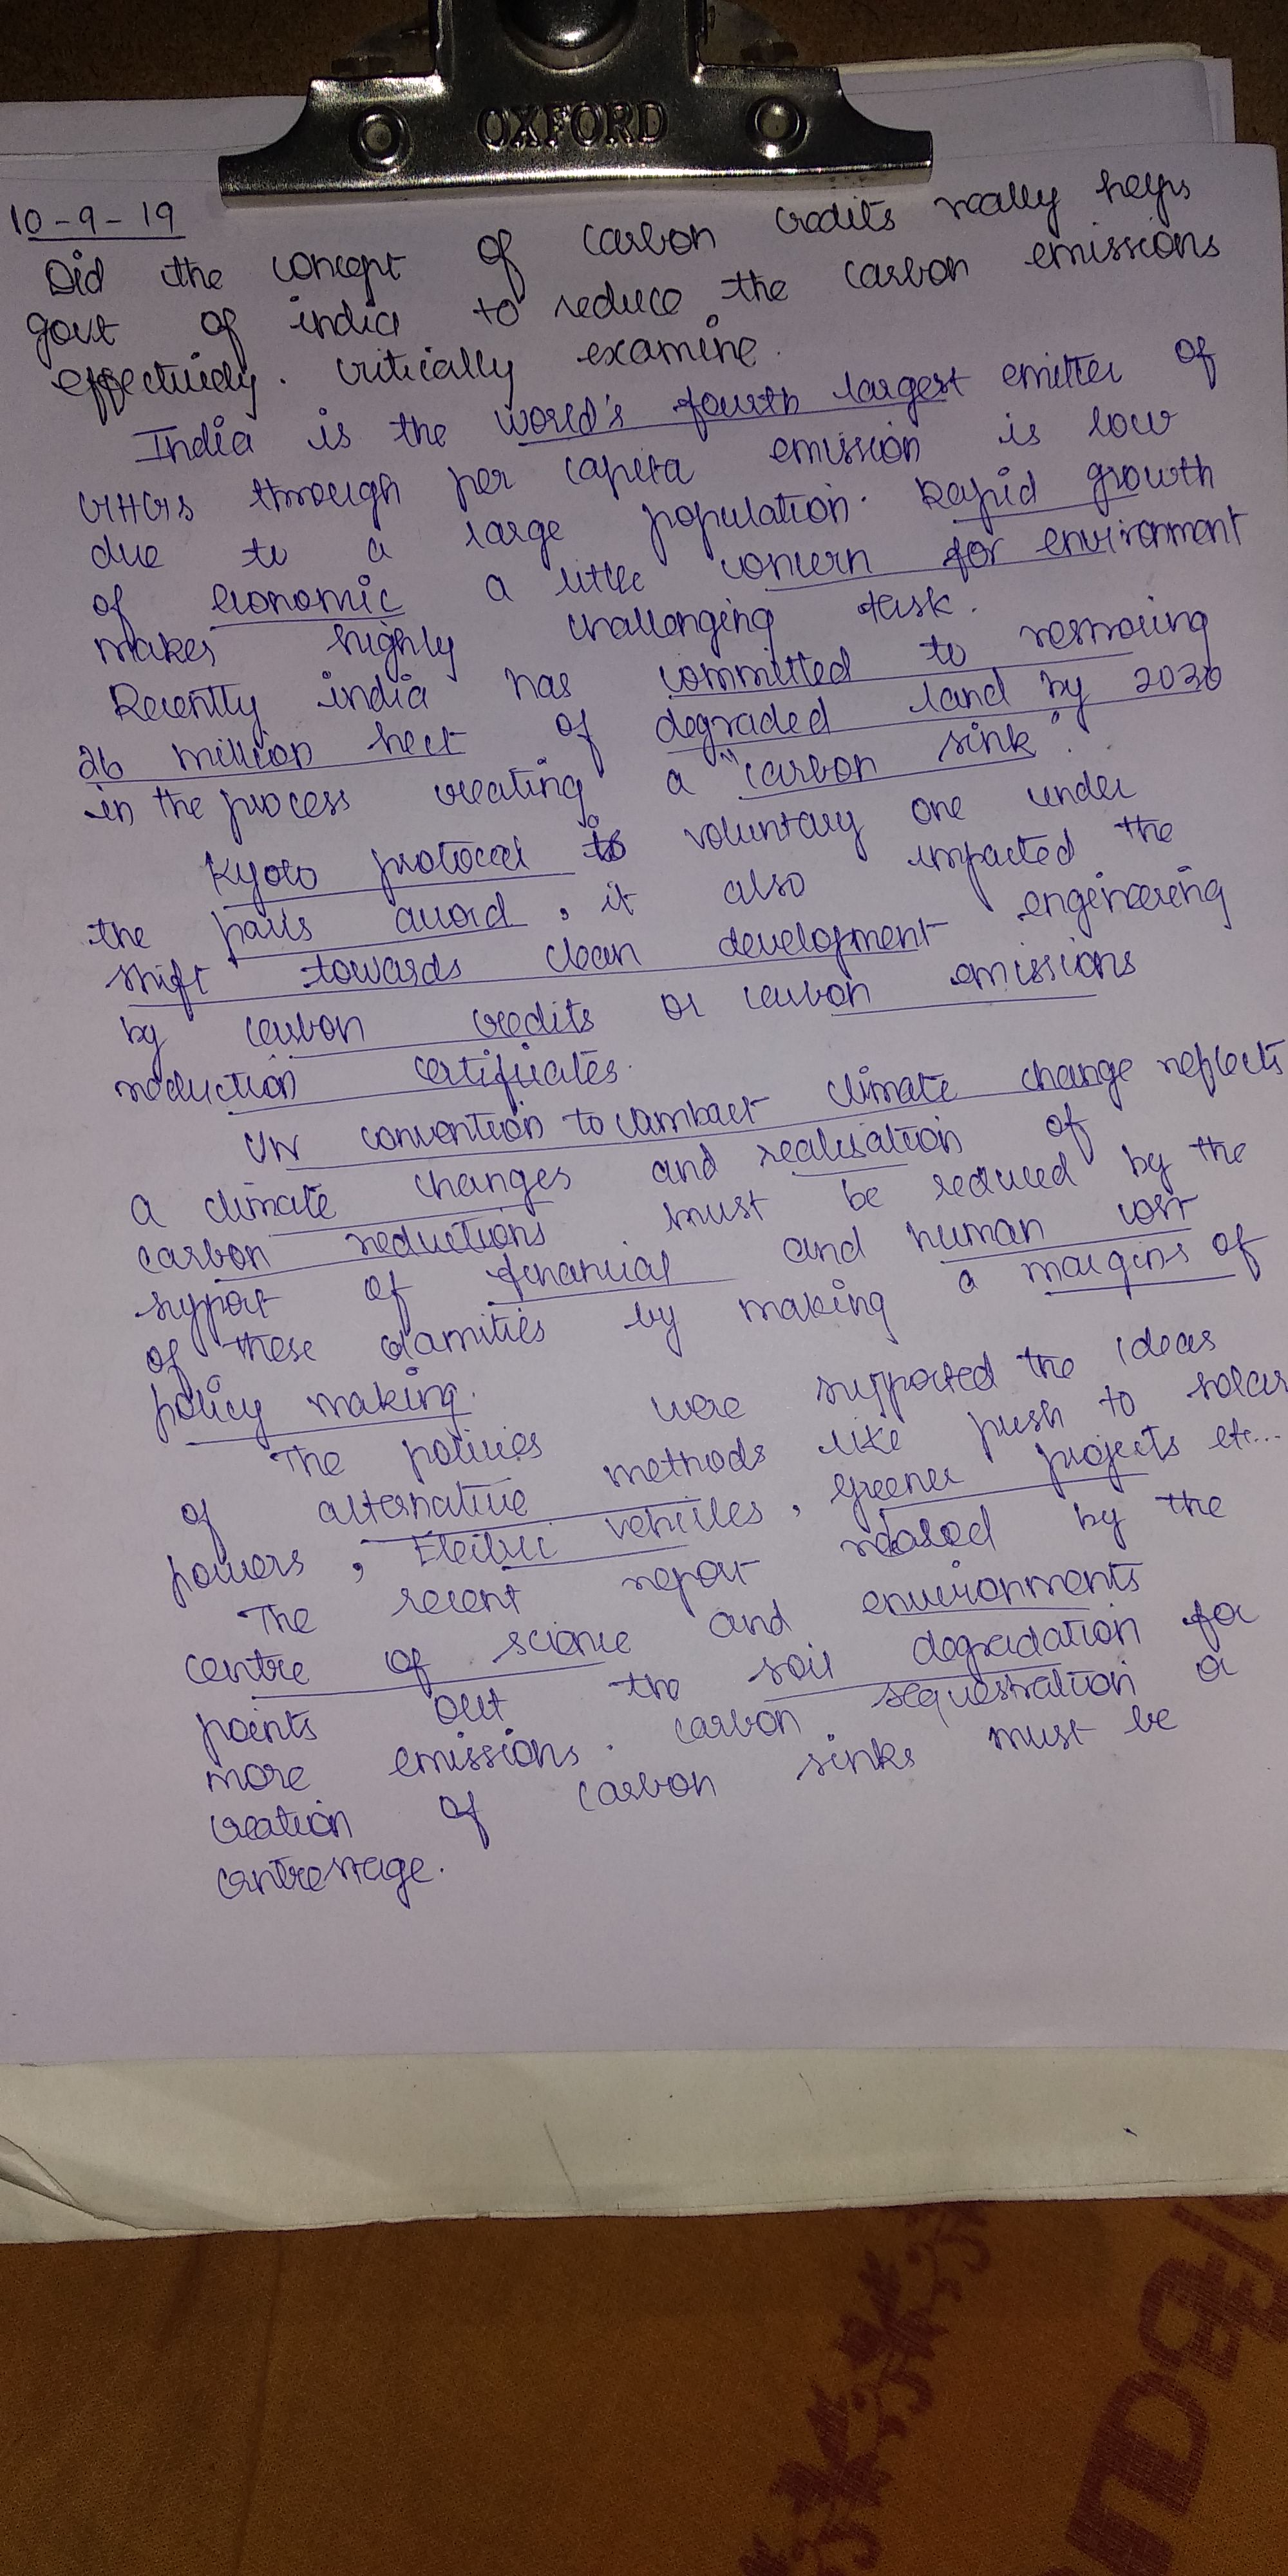 OXFORD
10-9-19
Did the concept of carbon credits really helps
govt of india to reduce the carbon emissions
effectively. critically examine.
India is the world's fourth largest emitter of
GHGs through per capita emission is low
due to a large population. Rapid growth
of economic a little concern for environment
makes highly challenging task.
Recently india has committed to restoring
26 million hect of degraded land by 2030
in the process creating a "carbon sink".
Kyoto protocol to voluntary one under
the paris accord, it also impacted the
shift towards clean development engineering
by carbon credits or carbon emissions
reduction certificates.
UN convention to combact climate change reflects
a climate changes and realisation of
carbon reductions must be reduced by the
support of financial and human cost
of these calamities by making a margins of
policy making.
The policies were supported the ideas
of alternative methods like push to solar
powers, Electric vehicles, greener projects etc...
The recent report released by the
centre of science and environments
points out the soil degradation for
more emissions. carbon sequestration or
creation of carbon sinks must be
centrestage.